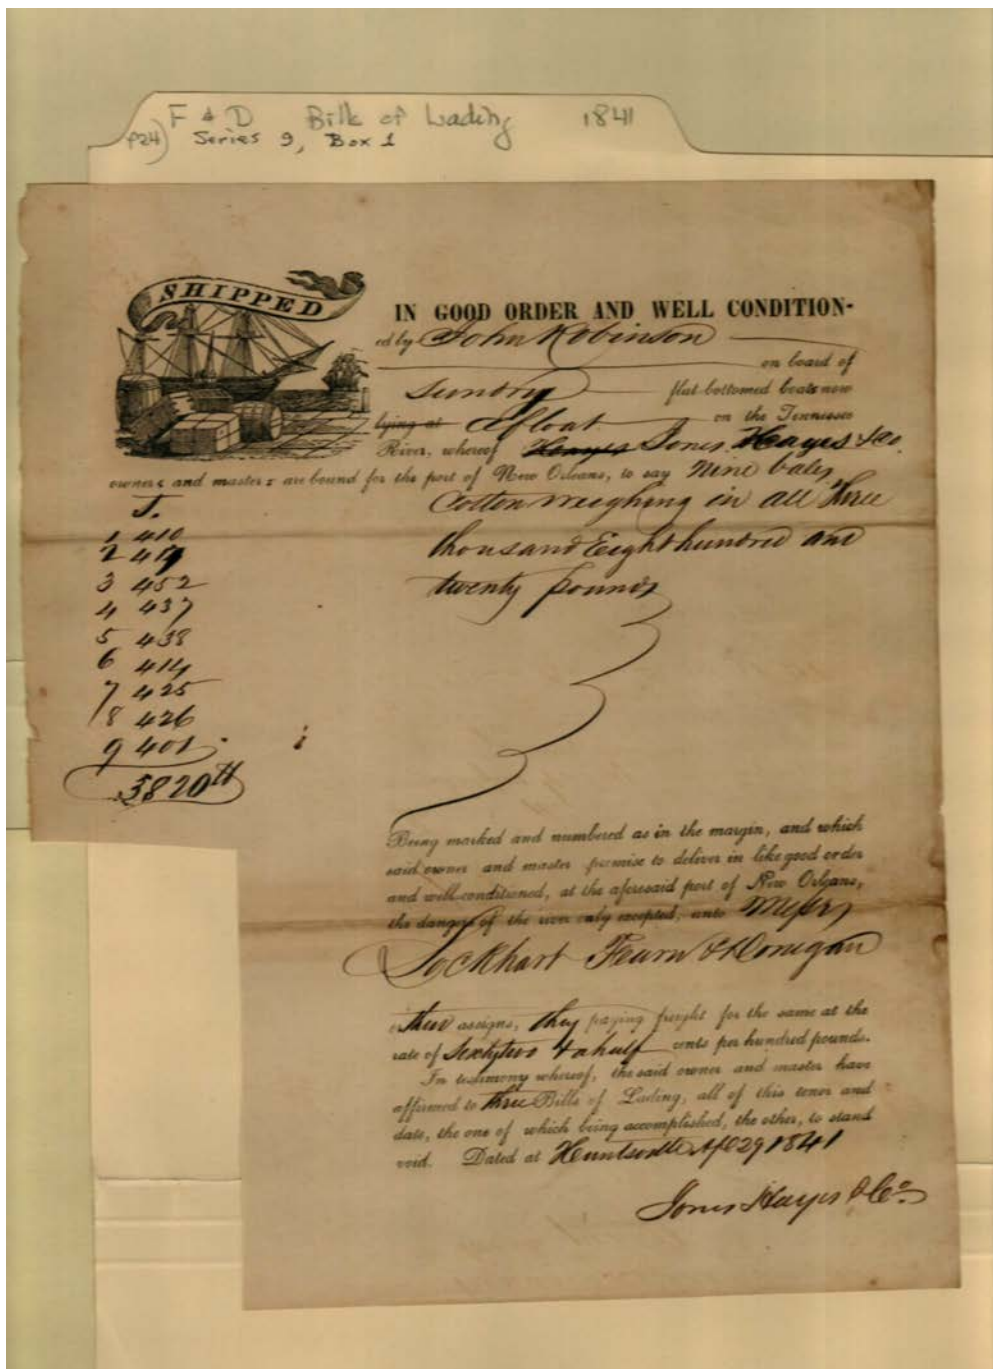 F & D Bills of Lading 1841
P24) Series 9, Box 1
SHIPPED
IN GOOD ORDER AND WELL CONDITION-
ed by John Robinson
on board of
Sundry flat bottomed boats now
lying at Afloat on the Tennessee
River, whereof Hayes Jones Hayes & Co.
owners and masters are bound for the port of New Orleans, to say Nine bales
J. Cotton weighing in all three
1 410
2 417 thousand Eight hundred and
3 452 twenty pounds
4 437
5 438
6 414
7 425
8 426
9 401
3820 lb
Being marked and numbered as in the margin, and which
said owner and master promise to deliver in like good order
and well-conditioned, at the aforesaid port of New Orleans,
the dangers of the river only excepted, unto Messrs
Lockhart Fearn & Donegan
or their assigns, they paying freight for the same at the
rate of Sixty two & a half cents per hundred pounds.
In testimony whereof, the said owner and master have
affirmed to three Bills of Lading, all of this tenor and
date, the one of which being accomplished, the other, to stand
void. Dated at Huntsville Apl 29 1841
Jones Hayes & Co.